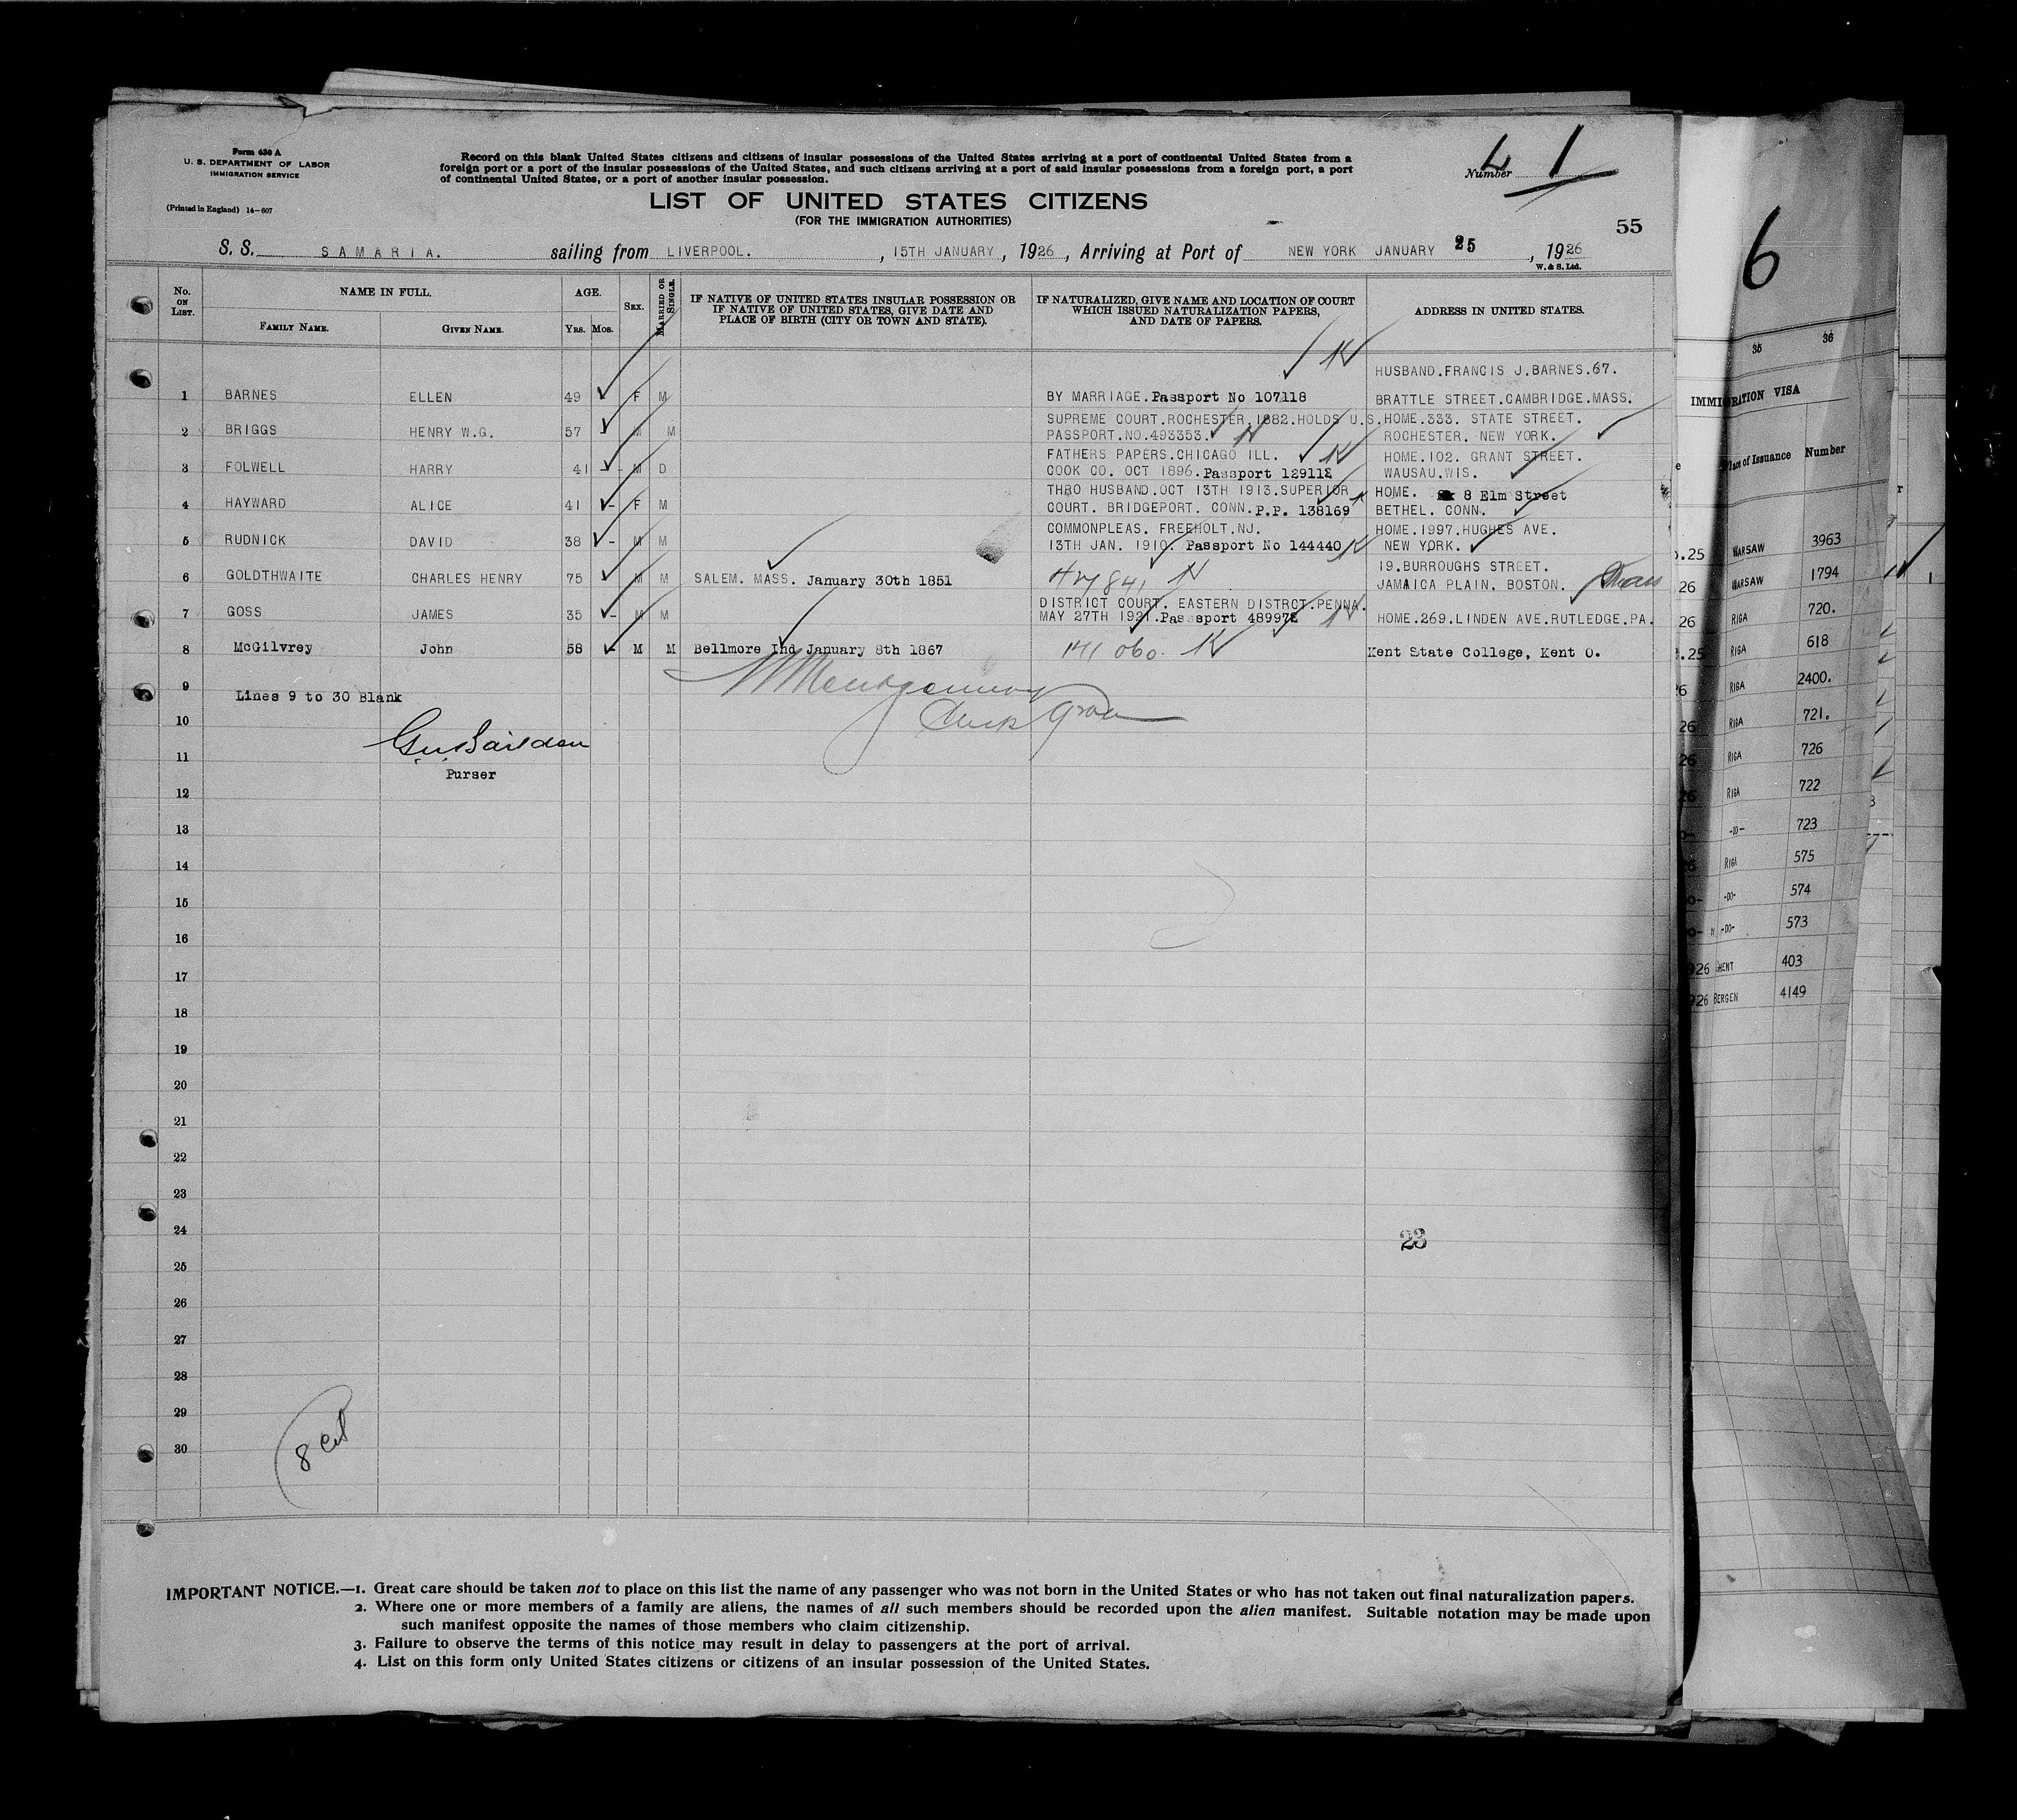 Form 630 A
U. S. DEPARTMENT OF LABOR
IMMIGRATION SERVICE
(Printed in England) 14-607
Record on this blank United States citizens and citizens of insular possessions of the United States arriving at a port of continental United States from a
foreign port or a port of the insular possessions of the United States, and such citizens arriving at a port of said insular possessions from a foreign port, a port
of continental United States, or a port of another insular possession.
Number 1
LIST OF UNITED STATES CITIZENS
(FOR THE IMMIGRATION AUTHORITIES)
55
S. S. SAMARIA. sailing from LIVERPOOL. , 15TH JANUARY , 1926 , Arriving at Port of NEW YORK JANUARY 25 , 1926
W. & S. Ltd.
No. ON LIST.
NAME IN FULL.
FAMILY NAME.
GIVEN NAME.
AGE.
YRS. MOS.
SEX.
MARRIED OR SINGLE.
IF NATIVE OF UNITED STATES INSULAR POSSESSION OR
IF NATIVE OF UNITED STATES, GIVE DATE AND
PLACE OF BIRTH (CITY OR TOWN AND STATE).
IF NATURALIZED, GIVE NAME AND LOCATION OF COURT
WHICH ISSUED NATURALIZATION PAPERS,
AND DATE OF PAPERS.
ADDRESS IN UNITED STATES.
HUSBAND.FRANCIS J.BARNES.67.
1 BARNES ELLEN 49 F M BY MARRIAGE.Passport No 107118 BRATTLE STREET.CAMBRIDGE.MASS.
SUPREME COURT.ROCHESTER.1882.HOLDS U.S. HOME.333. STATE STREET.
2 BRIGGS HENRY W.G. 57 - M M PASSPORT.NO.493353. ROCHESTER. NEW YORK.
FATHERS PAPERS.CHICAGO ILL. HOME.102. GRANT STREET.
3 FOLWELL HARRY 41 - M D COOK CO. OCT 1896.Passport 129112 WAUSAU.WIS.
THRO HUSBAND.OCT 13TH 1913.SUPERIOR HOME. 8 Elm Street
4 HAYWARD ALICE 41 - F M COURT. BRIDGEPORT. CONN.P.P. 138169 BETHEL. CONN.
COMMONPLEAS. FREEHOLT.NJ. HOME.1997.HUGHES AVE.
5 RUDNICK DAVID 38 - M M 13TH JAN. 1910. Passport No 144440 NEW YORK.
19.BURROUGHS STREET.
6 GOLDTHWAITE CHARLES HENRY 75 M M SALEM. MASS. January 30th 1851 JAMAICA PLAIN. BOSTON. Mass
DISTRICT COURT. EASTERN DISTRCT.PENNA.
7 GOSS JAMES 35 - M M MAY 27TH 1921.Passport 489972 HOME.269.LINDEN AVE.RUTLEDGE.PA.
8 McGilvrey John 58 - M M Bellmore Ind January 8th 1867 141 060. Kent State College, Kent O.
9 Lines 9 to 30 Blank
10
11
Purser
12
13
14
15
16
17
18
19
20
21
22
23
24
23
25
26
27
28
29
30
8 Cit
IMPORTANT NOTICE.—1. Great care should be taken not to place on this list the name of any passenger who was not born in the United States or who has not taken out final naturalization papers.
2. Where one or more members of a family are aliens, the names of all such members should be recorded upon the alien manifest. Suitable notation may be made upon
such manifest opposite the names of those members who claim citizenship.
3. Failure to observe the terms of this notice may result in delay to passengers at the port of arrival.
4. List on this form only United States citizens or citizens of an insular possession of the United States.
6
35 36
IMMIGRATION VISA
Place of Issuance Number
.25 WARSAW 3963
26 WARSAW 1794
26 RIGA 720.
.25 RIGA 618
26 RIGA 2400.
26 RIGA 721.
26 RIGA 726
26 RIGA 722
-D- 723
RIGA 575
-DO- 574
-DO- 573
926 GHENT 403
926 BERGEN 4149